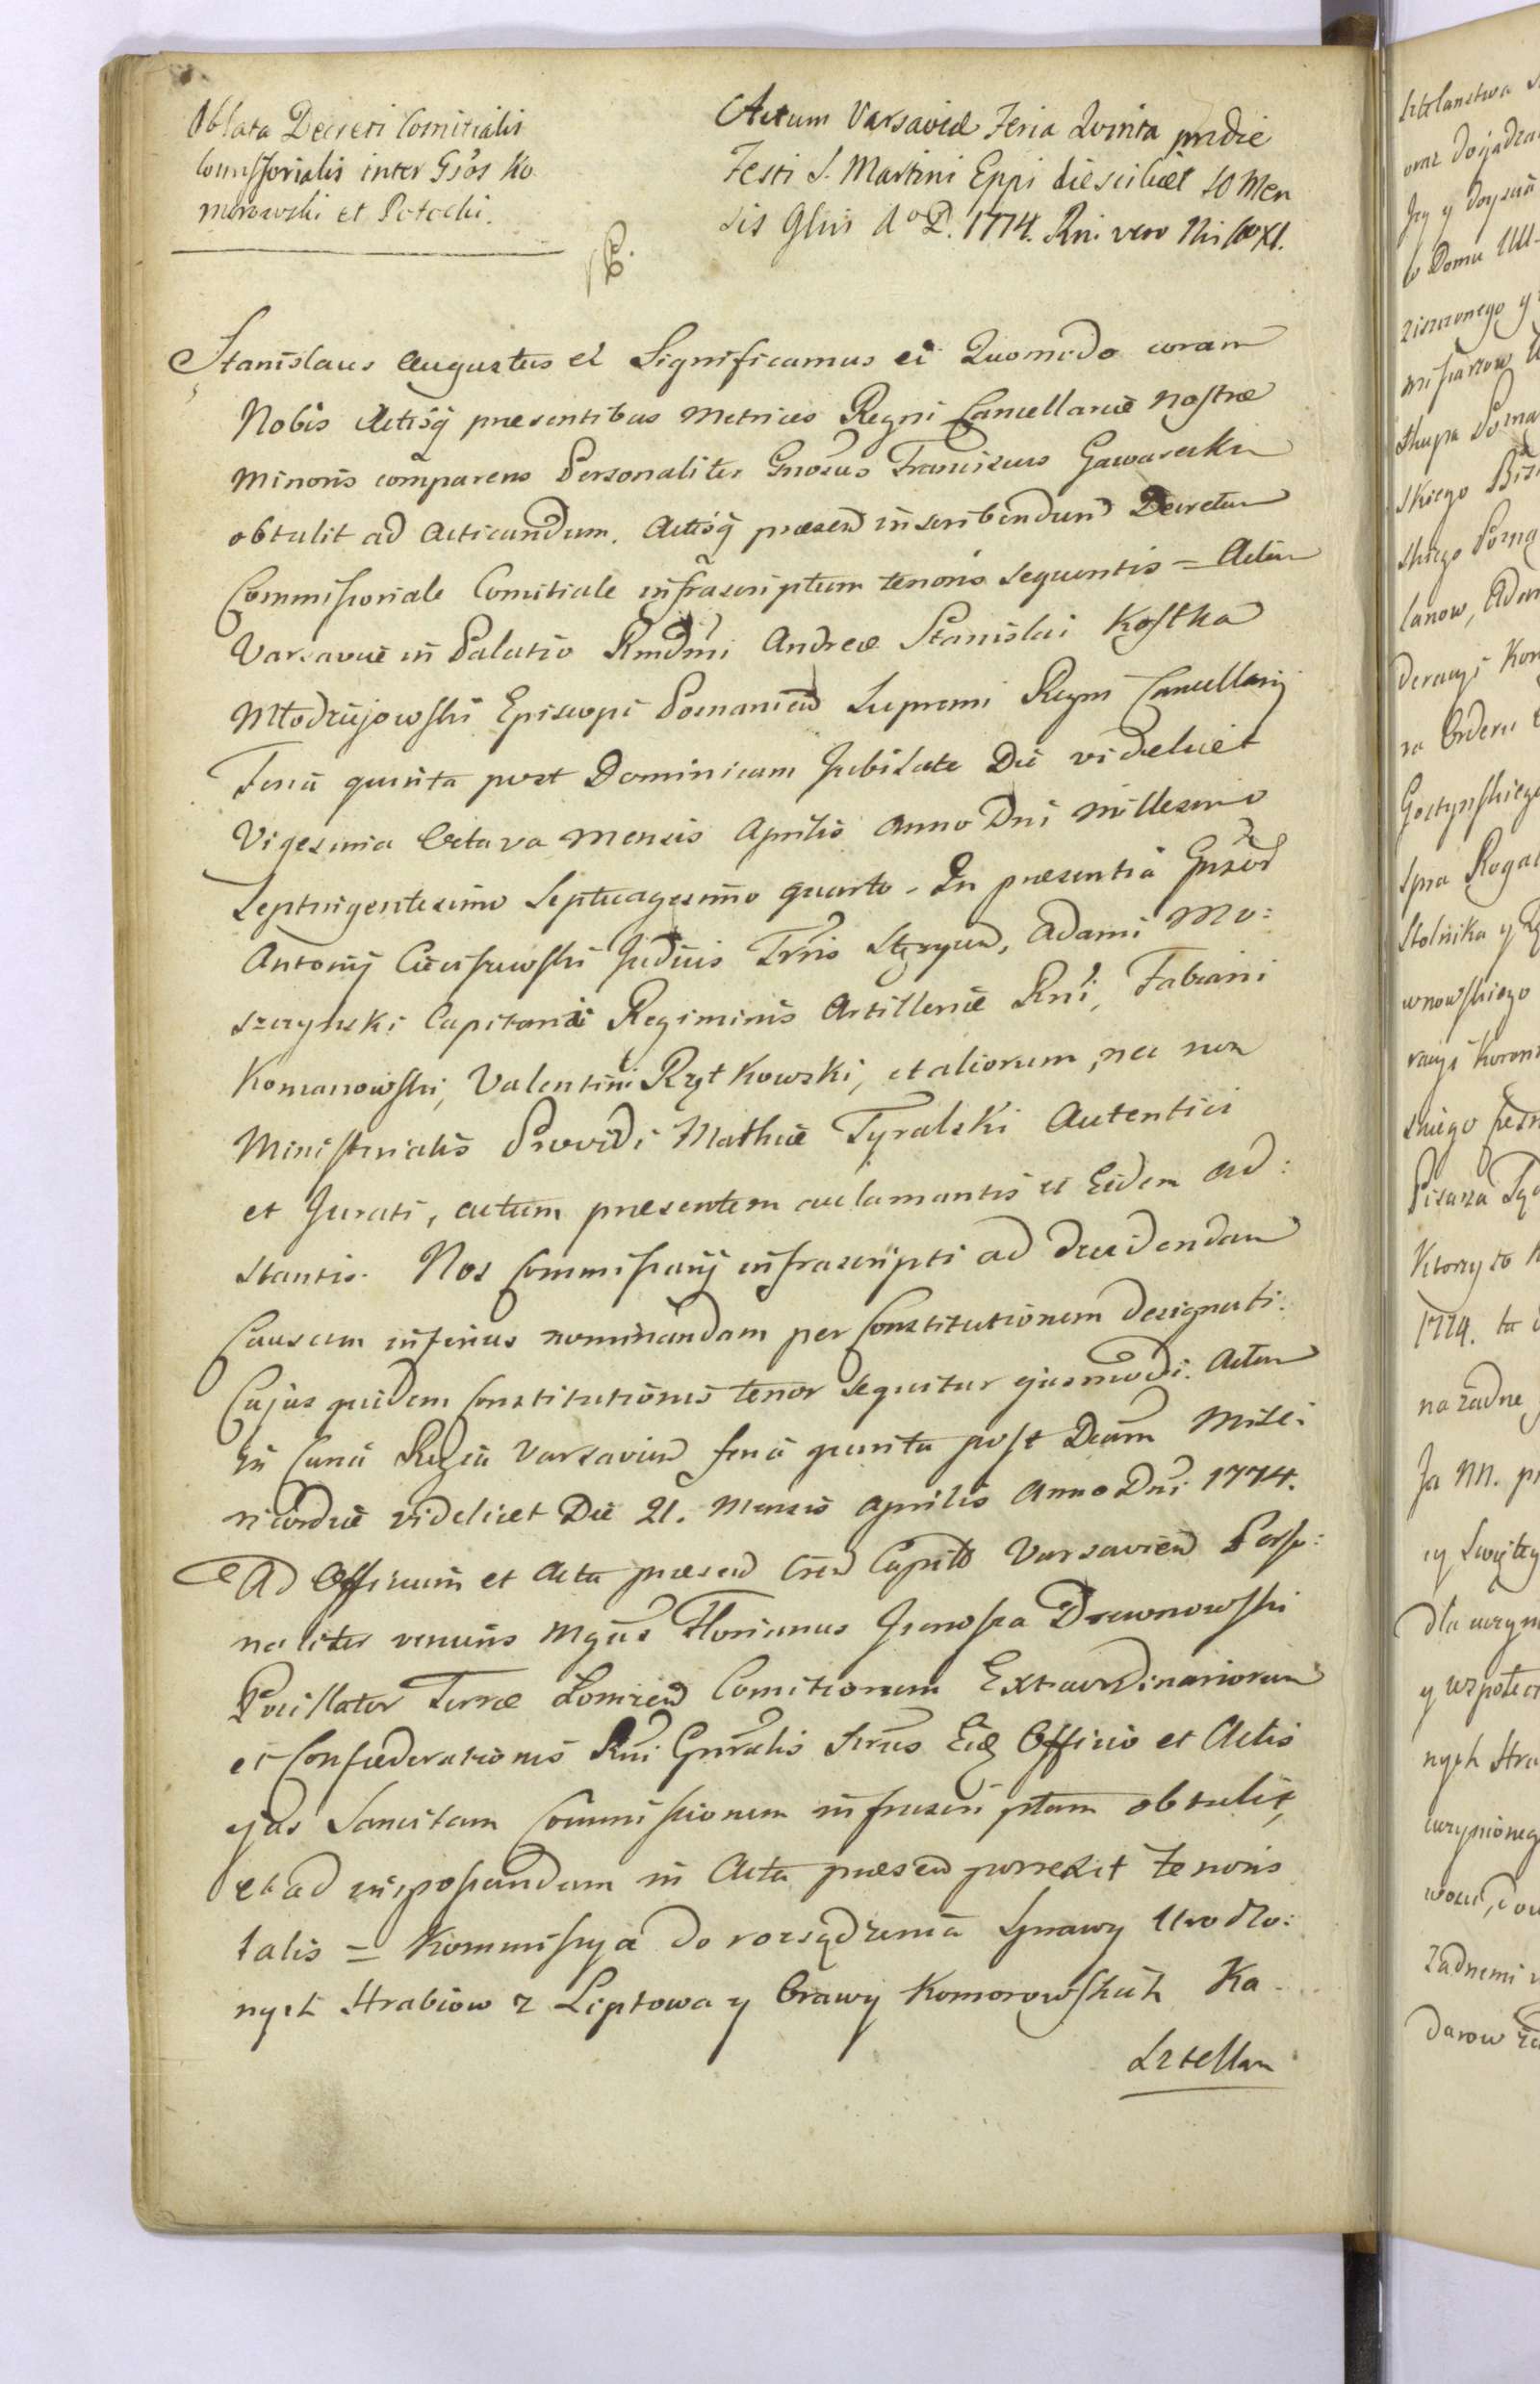 Oblata Decreti Comitialis
Commissorialis inter Gsos Ko
morowski et Potocki.
Actum Varsaviæ Feria Quinta pridie
Festi S. Martini Eppi die scilicet 10 Men
sis 9bris Ao D. 1774. Rni vero Nri XI.
Stanislaus Augustus et Significamus ei Quomodo coram
Nobis Actisq præsentibus Metrices Regni Cancellariæ nostræ
Minoris comparens Personaliter Gnosus Franciscus Gawarecki
obtulit ad acticandum. Actisq præsen inscribendum Decretum
Commissoriale Comitiale infrascriptum tenoris sequentis = Actum
Varsaviæ in Palatio Rmdmi Andreæ Stanislai Kostka
Młodziejowski Episcopi Posnanien Supremi Regni Cancellarij
Feria quinta post Dominicam Jubilate Die videlicet
Vigesima Octava Mensis Aprilis Anno Dni millesimo
Septingentesimo Septuagesimo quarto. In præsentia
Antonij Judicis Trris Adami Mo:
szczynski Capitanei Regiminis Artilleriæ Rni, Fabiani
Komanowski, Valentini Rzytkowski, et aliorum, nec non
Ministerialis Providi Mathiæ Tyralski Autentici
et Jurati, actum præsentem acclamantis et Eidem ad:
stantis. Nos Commissarij infrascripti ad decidendam
Causam inferius nominandam per Constitutionem designati.
Cujus quidem Constitutionis tenor sequitur ejusmodi. Actum
in Curia Regia Varsavien feria quinta post Dcam Mise:
ricordiæ videlicet Die 21. Mensis Aprilis Anno Dni 1774.
Ad Officium et Acta præsen Cren Capitl Varsavien Perso:
naliter veniens Mgcus Florianus Junosza Drewnowski
Pocillator Terræ Łomzen Comitiorum Extraordinariorum
et Confœderationis Rni Gnralis Srius Eid Officio et Actis
ejus Sancitam Commissionem infrascriptam obtulit,
et ad ingrossandum in Acta præsen porrexit tenoris
talis = Kommissya do rozsądzenia Sprawy Urodzo:
nych Hrabiow z Liptowa y Orawy Komorowskich Ka
sztellan
sztelanstwa
oraz dojadza
w Domu UU
ziszczonego y
Skiego
lanow, Adam
deracyi Kor
za Orderu
Gostynskiego
Stolnika y
wnowskiego
racyi Koron
skiego
Pisarza
Ktorzy to
1774.
na żadne
Ja NN.
dla
y wspołec
nych
żadnemi
darow